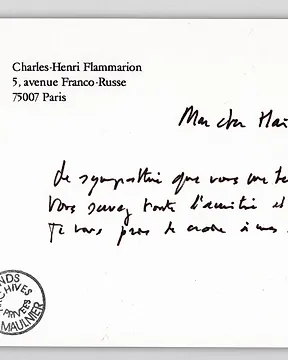 Charles-Henri Flammarion
5, avenue Franco-Russe
75007 Paris
Mon cher
de sympathie que vous me
Vous savez toute l'amitié et
Je vous prie de croire à mes
NDS
ARCHIVES
PRIVÉES
MAULNIER